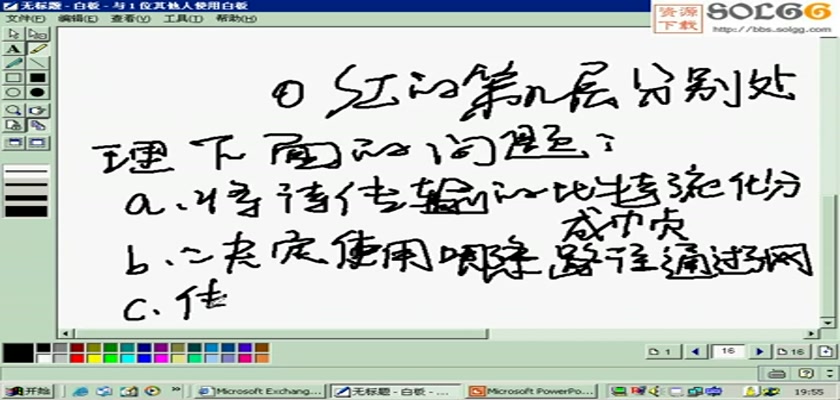 无标题 - 白板 - 与1位其他人使用白板
文件(F) 编辑(E) 查看(V) 工具(T) 帮助(H)
资源下载
SOLGG
http://bbs.solgg.com
① 的第几层分别处
理下面的问题：
a.将待传输的比特流化分
成帧
b.决定使用哪条路径通过网
c.传
1
16
16
开始
Microsoft Exchang...
无标题 - 白板 - ...
Microsoft PowerPo...
19:55